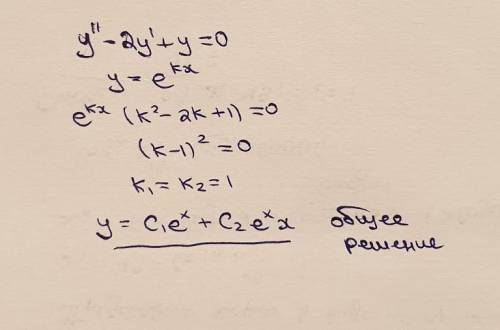 y'' - 2y' + y = 0
y = e^{kx}
e^{kx} (k² - 2k + 1) = 0
(k-1)² = 0
k₁ = k₂ = 1
y = C₁eˣ + C₂eˣx общее
решение